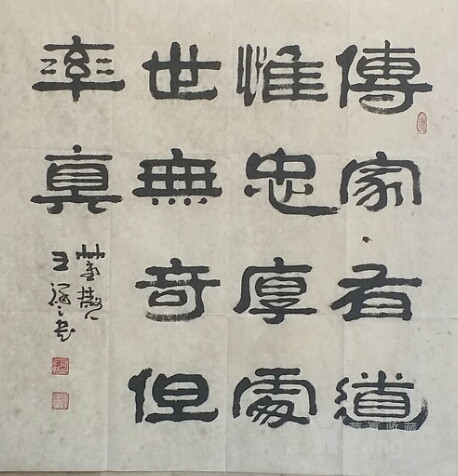 傳家有道
惟忠厚處
世無奇但
率真
散人
王之書